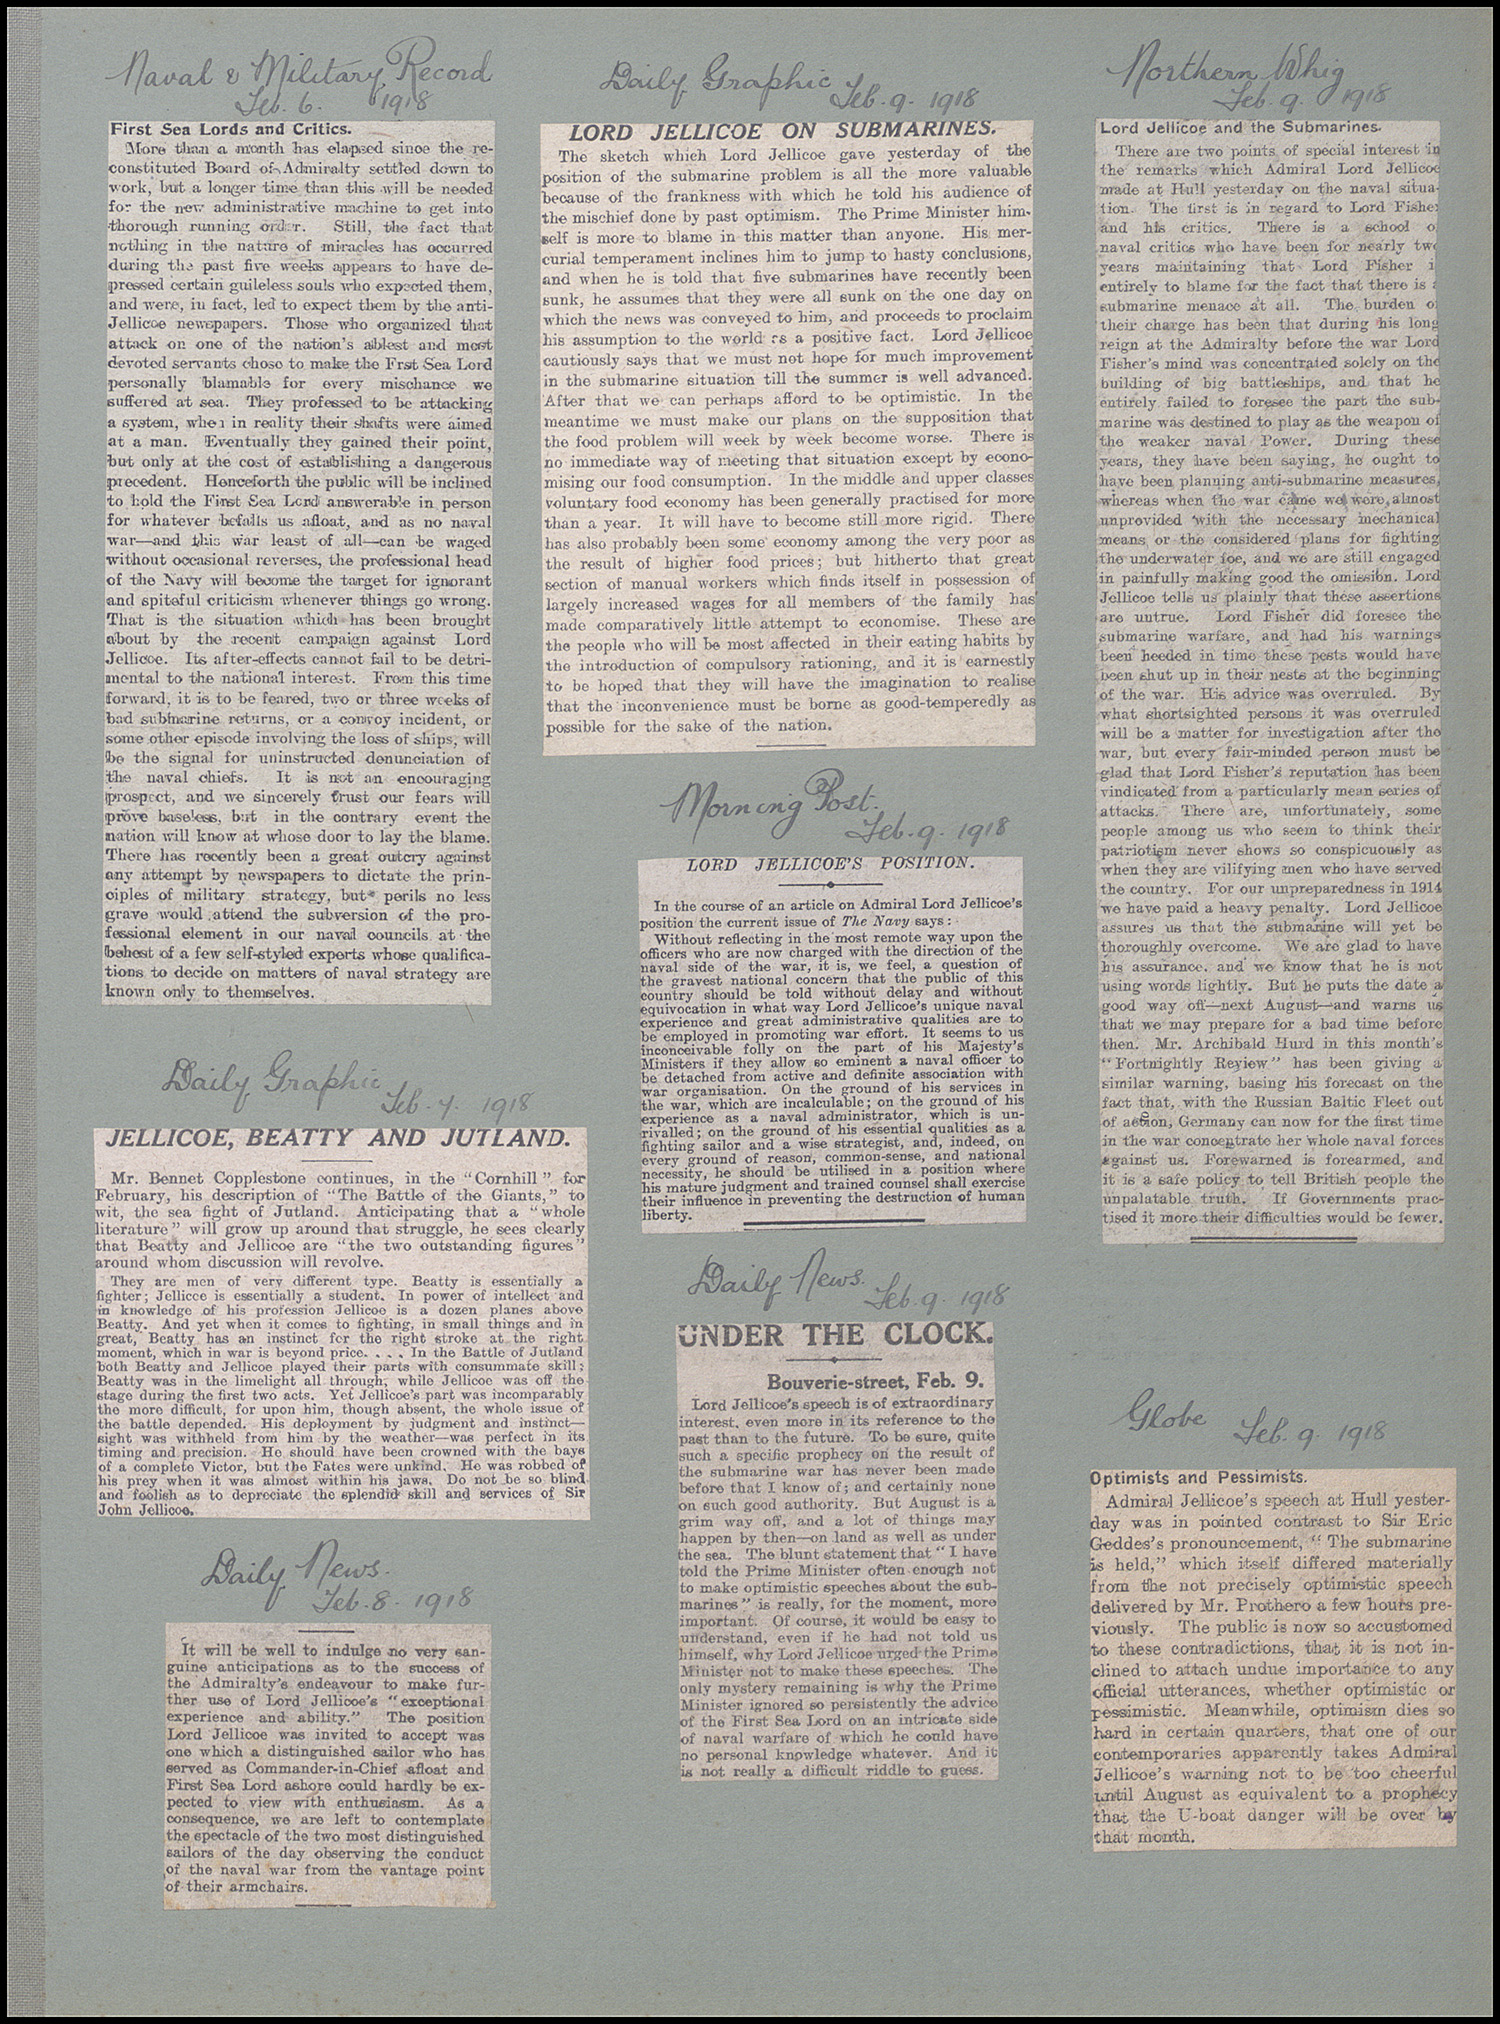 Naval & Military Record
Feb. 6. 1918
First Sea Lords and Critics.
More than a month has elapsed since the re-
constituted Board of Admiralty settled down to
work, but a longer time than this will be needed
for the new administrative machine to get into
thorough running order. Still, the fact that
nothing in the nature of miracles has occurred
during the past five weeks appears to have de-
pressed certain guileless souls who expected them,
and were, in fact, led to expect them by the anti-
Jellicoe newspapers. Those who organized that
attack on one of the nation's ablest and most
devoted servants chose to make the Frst Sea Lord
personally blamable for every mischance we
suffered at sea. They professed to be attacking
a system, when in reality their shafts were aimed
at a man. Eventually they gained their point,
but only at the cost of establishing a dangerous
precedent. Henceforth the public will be inclined
to hold the First Sea Lord answerable in person
for whatever befalls us afloat, and as no naval
war—and this war least of all—can be waged
without occasional reverses, the professional head
of the Navy will become the target for ignorant
and spiteful criticism whenever things go wrong.
That is the situation which has been brought
about by the recent campaign against Lord
Jellicoe. Its after-effects cannot fail to be detri-
mental to the national interest. From this time
forward, it is to be feared, two or three weeks of
bad submarine returns, or a convoy incident, or
some other episode involving the loss of ships, will
be the signal for uninstructed denunciation of
the naval chiefs. It is not an encouraging
prospect, and we sincerely trust our fears will
prove baseless, but in the contrary event the
nation will know at whose door to lay the blame.
There has recently been a great outcry against
any attempt by newspapers to dictate the prin-
ciples of military strategy, but perils no less
grave would attend the subversion of the pro-
fessional element in our naval councils at the
behest of a few self-styled experts whose qualifica-
tions to decide on matters of naval strategy are
known only to themselves.
Daily Graphic
Feb. 7. 1918
JELLICOE, BEATTY AND JUTLAND.
Mr. Bennet Copplestone continues, in the "Cornhill" for
February, his description of "The Battle of the Giants," to
wit, the sea fight of Jutland. Anticipating that a "whole
literature" will grow up around that struggle, he sees clearly
that Beatty and Jellicoe are "the two outstanding figures"
around whom discussion will revolve.
They are men of very different type. Beatty is essentially a
fighter; Jellicoe is essentially a student. In power of intellect and
in knowledge of his profession Jellicoe is a dozen planes above
Beatty. And yet when it comes to fighting, in small things and in
great, Beatty has an instinct for the right stroke at the right
moment, which in war is beyond price. . . . In the Battle of Jutland
both Beatty and Jellicoe played their parts with consummate skill;
Beatty was in the limelight all through, while Jellicoe was off the
stage during the first two acts. Yet Jellicoe's part was incomparably
the more difficult, for upon him, though absent, the whole issue of
the battle depended. His deployment by judgment and instinct—
sight was withheld from him by the weather—was perfect in its
timing and precision. He should have been crowned with the bays
of a complete Victor, but the Fates were unkind. He was robbed of
his prey when it was almost within his jaws. Do not be so blind
and foolish as to depreciate the splendid skill and services of Sir
John Jellicoe.
Daily News.
Feb. 8. 1918
It will be well to indulge no very san-
guine anticipations as to the success of
the Admiralty's endeavour to make fur-
ther use of Lord Jellicoe's "exceptional
experience and ability." The position
Lord Jellicoe was invited to accept was
one which a distinguished sailor who has
served as Commander-in-Chief afloat and
First Sea Lord ashore could hardly be ex-
pected to view with enthusiasm. As a
consequence, we are left to contemplate
the spectacle of the two most distinguished
sailors of the day observing the conduct
of the naval war from the vantage point
of their armchairs.
Daily Graphic
Feb. 9. 1918
LORD JELLICOE ON SUBMARINES.
The sketch which Lord Jellicoe gave yesterday of the
position of the submarine problem is all the more valuable
because of the frankness with which he told his audience of
the mischief done by past optimism. The Prime Minister him-
self is more to blame in this matter than anyone. His mer-
curial temperament inclines him to jump to hasty conclusions,
and when he is told that five submarines have recently been
sunk, he assumes that they were all sunk on the one day on
which the news was conveyed to him, and proceeds to proclaim
his assumption to the world as a positive fact. Lord Jellicoe
cautiously says that we must not hope for much improvement
in the submarine situation till the summer is well advanced.
After that we can perhaps afford to be optimistic. In the
meantime we must make our plans on the supposition that
the food problem will week by week become worse. There is
no immediate way of meeting that situation except by econo-
mising our food consumption. In the middle and upper classes
voluntary food economy has been generally practised for more
than a year. It will have to become still more rigid. There
has also probably been some economy among the very poor as
the result of higher food prices; but hitherto that great
section of manual workers which finds itself in possession of
largely increased wages for all members of the family has
made comparatively little attempt to economise. These are
the people who will be most affected in their eating habits by
the introduction of compulsory rationing, and it is earnestly
to be hoped that they will have the imagination to realise
that the inconvenience must be borne as good-temperedly as
possible for the sake of the nation.
Morning Post.
Feb. 9. 1918
LORD JELLICOE'S POSITION.
In the course of an article on Admiral Lord Jellicoe's
position the current issue of The Navy says:
Without reflecting in the most remote way upon the
officers who are now charged with the direction of the
naval side of the war, it is, we feel, a question of
the gravest national concern that the public of this
country should be told without delay and without
equivocation in what way Lord Jellicoe's unique naval
experience and great administrative qualities are to
be employed in promoting war effort. It seems to us
inconceivable folly on the part of his Majesty's
Ministers if they allow so eminent a naval officer to
be detached from active and definite association with
war organisation. On the ground of his services in
the war, which are incalculable; on the ground of his
experience as a naval administrator, which is un-
rivalled; on the ground of his essential qualities as a
fighting sailor and a wise strategist, and, indeed, on
every ground of reason, common-sense, and national
necessity, he should be utilised in a position where
his mature judgment and trained counsel shall exercise
their influence in preventing the destruction of human
liberty.
Daily News.
Feb. 9. 1918
UNDER THE CLOCK.
Bouverie-street, Feb. 9.
Lord Jellicoe's speech is of extraordinary
interest, even more in its reference to the
past than to the future. To be sure, quite
such a specific prophecy on the result of
the submarine war has never been made
before that I know of; and certainly none
on such good authority. But August is a
grim way off, and a lot of things may
happen by then—on land as well as under
the sea. The blunt statement that "I have
told the Prime Minister often enough not
to make optimistic speeches about the sub-
marines" is really, for the moment, more
important. Of course, it would be easy to
understand, even if he had not told us
himself, why Lord Jellicoe urged the Prime
Minister not to make these speeches. The
only mystery remaining is why the Prime
Minister ignored so persistently the advice
of the First Sea Lord on an intricate side
of naval warfare of which he could have
no personal knowledge whatever. And it
is not really a difficult riddle to guess.
Northern Whig
Feb. 9. 1918
Lord Jellicoe and the Submarines.
There are two points of special interest in
the remarks which Admiral Lord Jellicoe
made at Hull yesterday on the naval situa-
tion. The first is in regard to Lord Fisher
and his critics. There is a school o
naval critics who have been for nearly two
years maintaining that Lord Fisher i
entirely to blame for the fact that there is a
submarine menace at all. The burden o
their charge has been that during his long
reign at the Admiralty before the war Lord
Fisher's mind was concentrated solely on the
building of big battleships, and that he
entirely failed to foresee the part the sub-
marine was destined to play as the weapon of
the weaker naval Power. During these
years, they have been saying, he ought to
have been planning anti-submarine measures,
whereas when the war came we were almost
unprovided with the necessary mechanical
means or the considered plans for fighting
the underwater foe, and we are still engaged
in painfully making good the omission. Lord
Jellicoe tells us plainly that these assertions
are untrue. Lord Fisher did foresee the
submarine warfare, and had his warnings
been heeded in time these pests would have
been shut up in their nests at the beginning
of the war. His advice was overruled. By
what shortsighted persons it was overruled
will be a matter for investigation after the
war, but every fair-minded person must be
glad that Lord Fisher's reputation has been
vindicated from a particularly mean series of
attacks. There are, unfortunately, some
people among us who seem to think their
patriotism never shows so conspicuously as
when they are vilifying men who have served
the country. For our unpreparedness in 1914
we have paid a heavy penalty. Lord Jellicoe
assures us that the submarine will yet be
thoroughly overcome. We are glad to have
his assurance, and we know that he is not
using words lightly. But he puts the date a
good way off—next August—and warns us
that we may prepare for a bad time before
then. Mr. Archibald Hurd in this month's
"Fortnightly Review" has been giving a
similar warning, basing his forecast on the
fact that, with the Russian Baltic Fleet out
of action, Germany can now for the first time
in the war concentrate her whole naval forces
against us. Forewarned is forearmed, and
it is a safe policy to tell British people the
unpalatable truth. If Governments prac-
tised it more their difficulties would be fewer.
Globe Feb. 9. 1918
Optimists and Pessimists.
Admiral Jellicoe's speech at Hull yester-
day was in pointed contrast to Sir Eric
Geddes's pronouncement, "The submarine
is held," which itself differed materially
from the not precisely optimistic speech
delivered by Mr. Prothero a few hours pre-
viously. The public is now so accustomed
to these contradictions, that it is not in-
clined to attach undue importance to any
official utterances, whether optimistic or
pessimistic. Meanwhile, optimism dies so
hard in certain quarters, that one of our
contemporaries apparently takes Admiral
Jellicoe's warning not to be too cheerful
until August as equivalent to a prophecy
that the U-boat danger will be over by
that month.